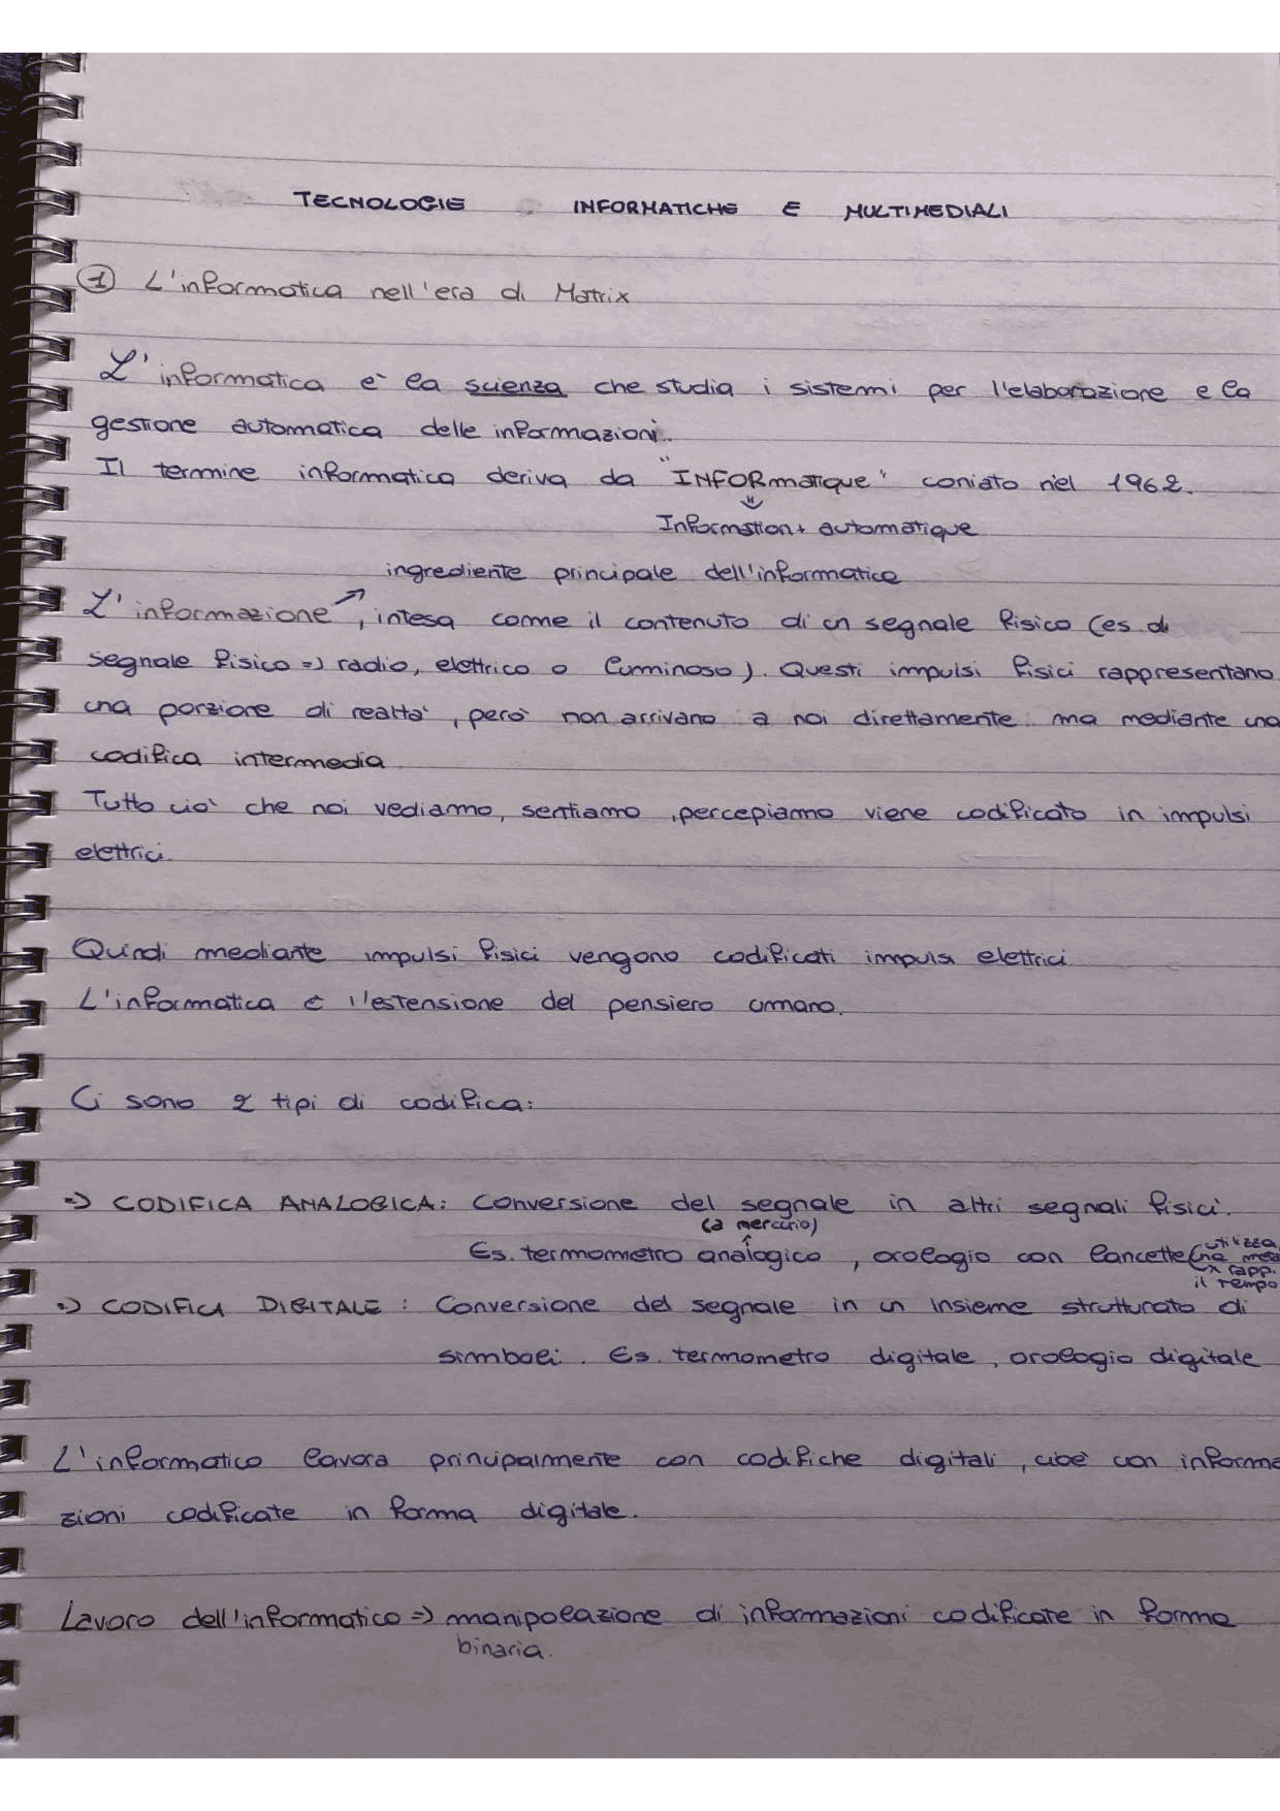 TECNOLOGIE INFORMATICHE E MULTIMEDIALI
1 L'informatica nell'era di Matrix
L'informatica e' la scienza che studia i sistemi per l'elaborazione e la
gestione automatica delle informazioni.
Il termine informatica deriva da "INFORmatique" coniato nel 1962.
Information + automatique
ingrediente principale dell'informatica
L'informazione ↗, intesa come il contenuto di un segnale fisico (es. di
segnale fisico => radio, elettrico o luminoso). Questi impulsi fisici rappresentano
una porzione di realta', pero' non arrivano a noi direttamente ma mediante una
codifica intermedia
Tutto cio' che noi vediamo, sentiamo, percepiamo viene codificato in impulsi
elettrici.
Quindi mediante impulsi fisici vengono codificati impulsi elettrici
L'informatica è l'estensione del pensiero umano.
Ci sono 2 tipi di codifica:
=> CODIFICA ANALOGICA: Conversione del segnale in altri segnali fisici.
(a mercurio)
Es. termometro analogico, orologio con lancette (utilizza
x rapp.
il tempo
=> CODIFICA DIGITALE: Conversione del segnale in un insieme strutturato di
simboli. Es. termometro digitale, orologio digitale
L'informatico lavora principalmente con codifiche digitali, cioè con informa
zioni codificate in forma digitale.
Lavoro dell'informatico => manipolazione di informazioni codificate in forma
binaria.